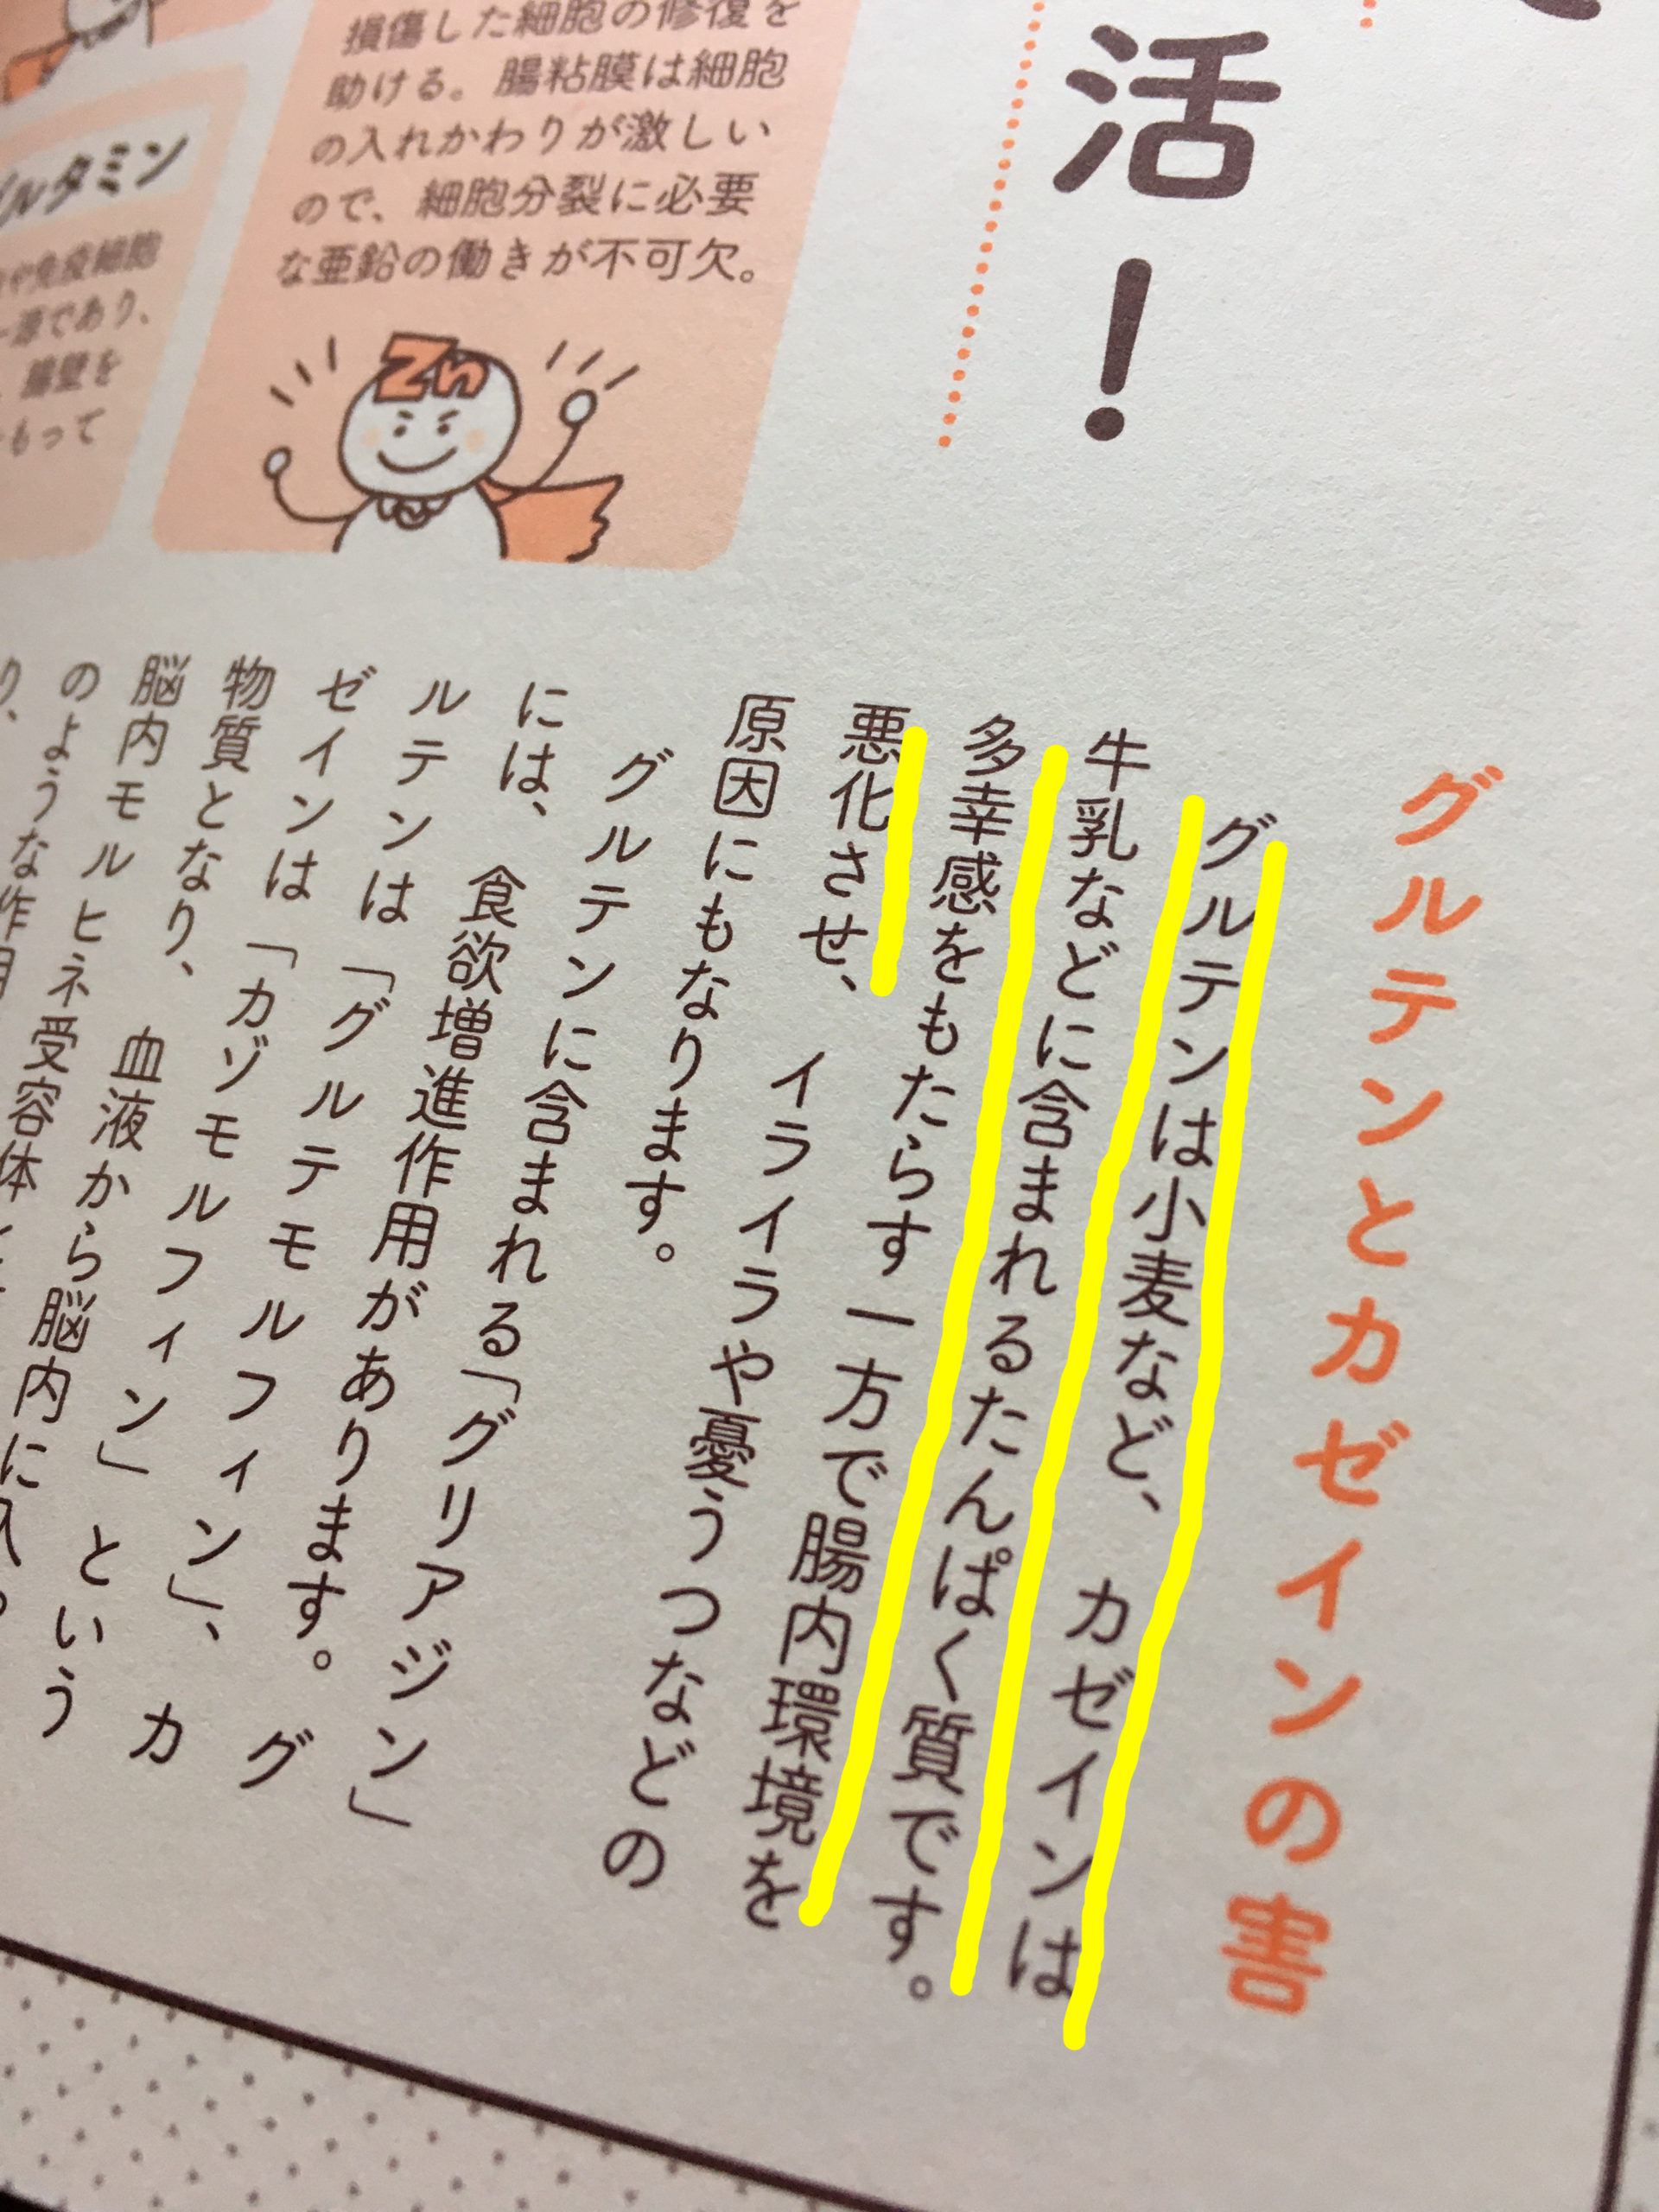 活！
損傷した細胞の修復を
助ける。腸粘膜は細胞
の入れかわりが激しい
ので、細胞分裂に必要
な亜鉛の働きが不可欠。
Zn
ルタミン
や免疫細胞
源であり、
腸壁を
もって
グルテンとカゼインの害
グルテンは小麦など、カゼインは
牛乳などに含まれるたんぱく質です。
多幸感をもたらす一方で腸内環境を
悪化させ、イライラや憂うつなどの
原因にもなります。
グルテンに含まれる「グリアジン」
には、食欲増進作用があります。グ
ルテンは「グルテモルフィン」、カ
ゼインは「カゾモルフィン」という
物質となり、血液から脳内に入っ
脳内モルヒネ受容体
のような作用
り、